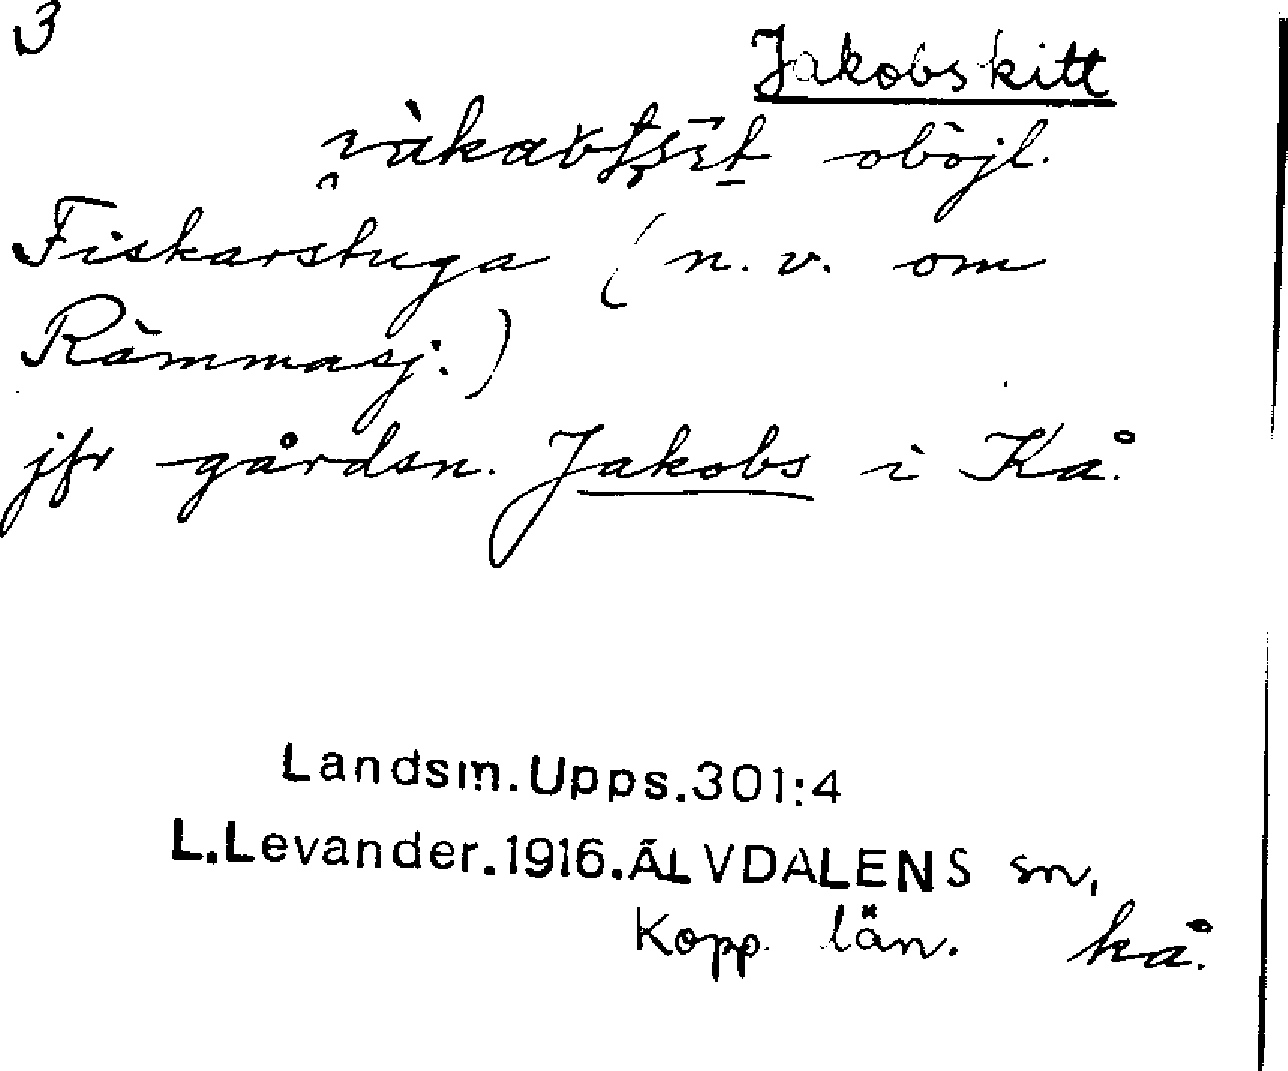 3
Jakobskitt
oböjl.
Fiskarstuga (n. v. om
Rämmasj.)
jfr gårdsn. Jakobs i Kå.
Landsm.Upps.301:4
L.Levander.1916.ÄLVDALENS sn,
Kopp. län. kå.